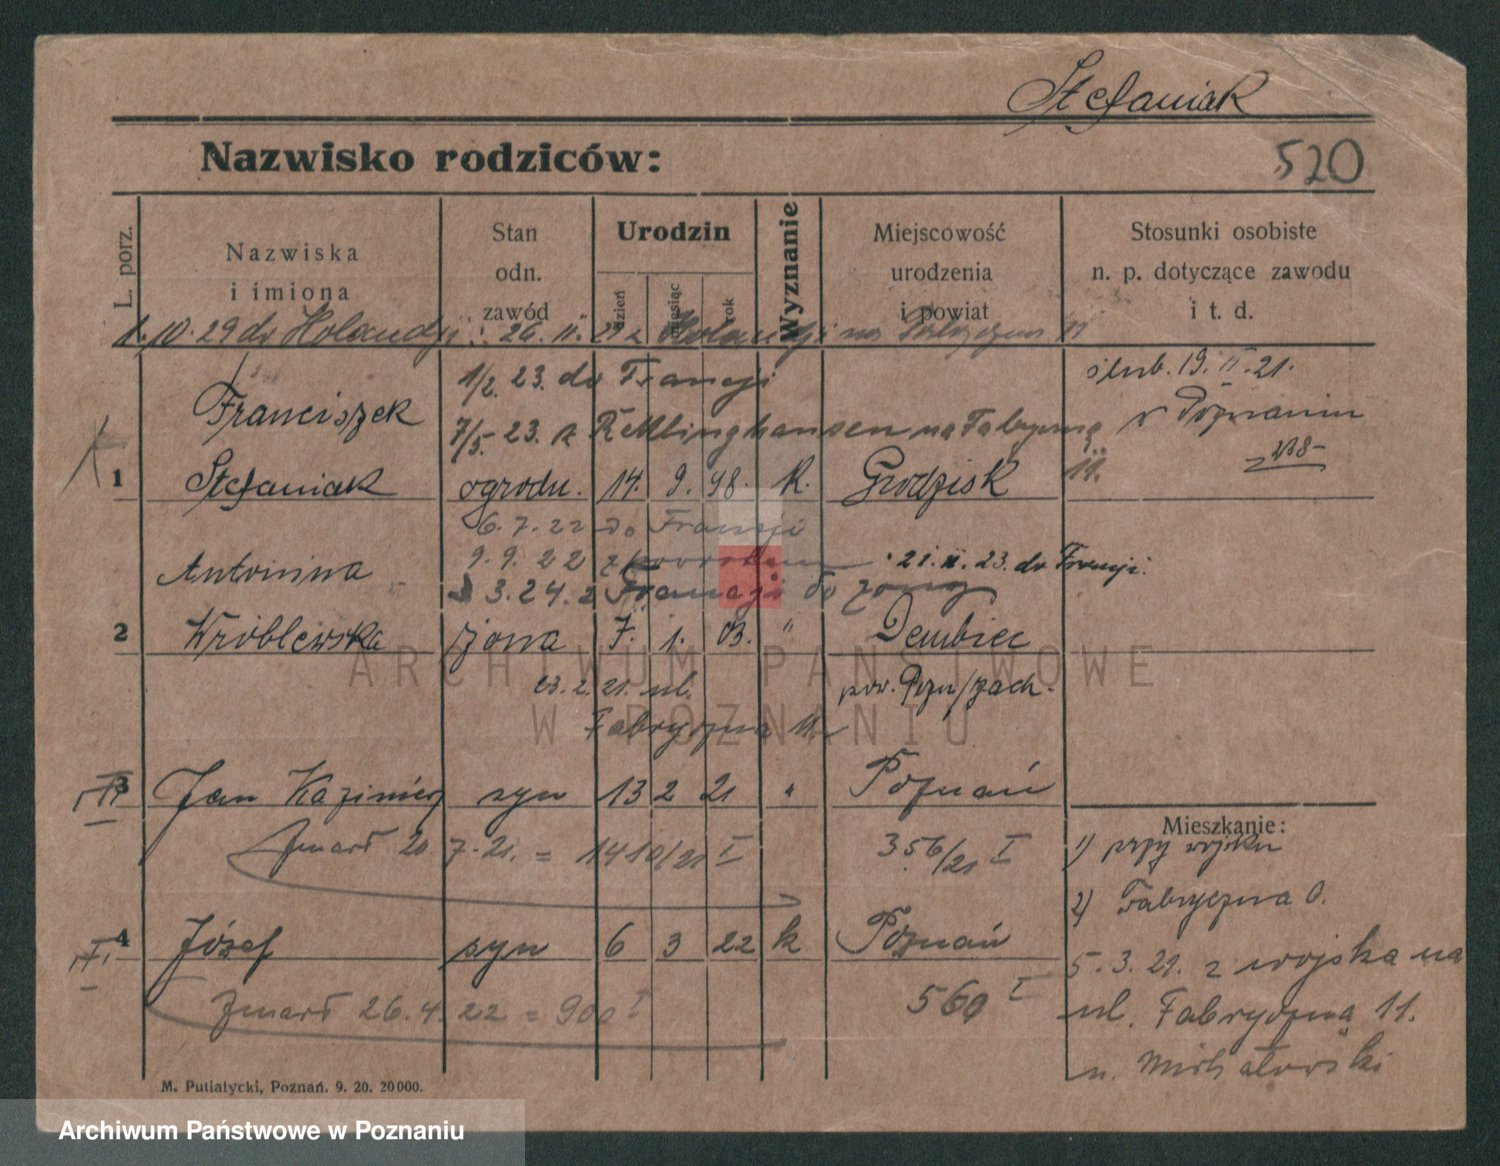 Stefaniak
Nazwisko rodziców:
520
L. porz.
Nazwiska
i imiona
Stan
odn.
zawód
Urodzin
dzień
miesiąc
rok
Wyznanie
Miejscowość
urodzenia
i powiat
Stosunki osobiste
n. p. dotyczące zawodu
i t. d.
1. 10. 29 do Holandji 26. 11. 29 z Holandji na Fabryczna 11
1/2. 23. do Francji
ślub. 19. II. 21.
Franciszek
7/5. 23. z Recklinghausen na Fabryczną 11.
w Poznaniu
1
Stefaniak
ogrodn. 14. 9. 98. K. Grodzisk
6. 7. 22 do Francji
9. 9. 22 z powrotem
21. II. 23. do Francji.
Antonina
3. 24. z Francji do żony
2
Wróblewska
żona 7. 1. 03. " Dembiec
23. 2. 21. ul.
pow. Pozn/zach.
Fabryczna 11.
3
Jan Kazimierz syn 13 2 21 " Poznań
Zmarł 20. 7. 21. = 1410/21 I
356/21 I
Mieszkanie:
1) przy wojsku
2) Fabryczna 0.
4
Józef syn 6 3 22 k Poznań
5. 3. 21. z wojska na
Zmarł 26. 4. 22 = 900 I
560 I
ul. Fabryczną 11.
u. Michałowski
M. Putiatycki, Poznań. 9. 20. 20000.
ARCHIWUM PAŃSTWOWE
W POZNANIU
Archiwum Państwowe w Poznaniu